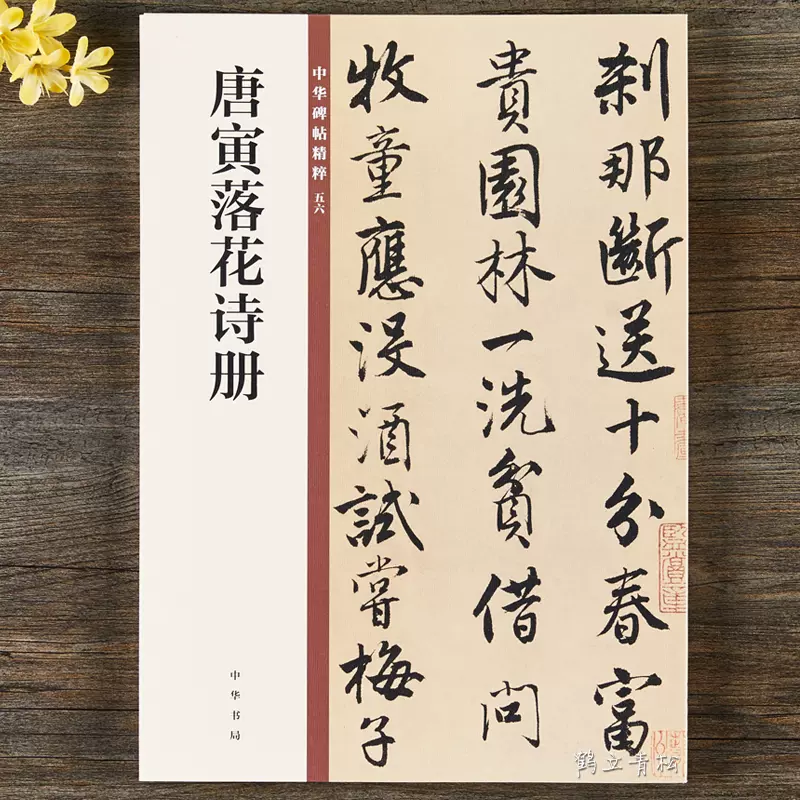 刹那斷送十分春富
貴園林一洗貧借問
牧童應没酒試嘗梅子
中华碑帖精粹 五六
唐寅落花诗册
中华书局
鹤立青松